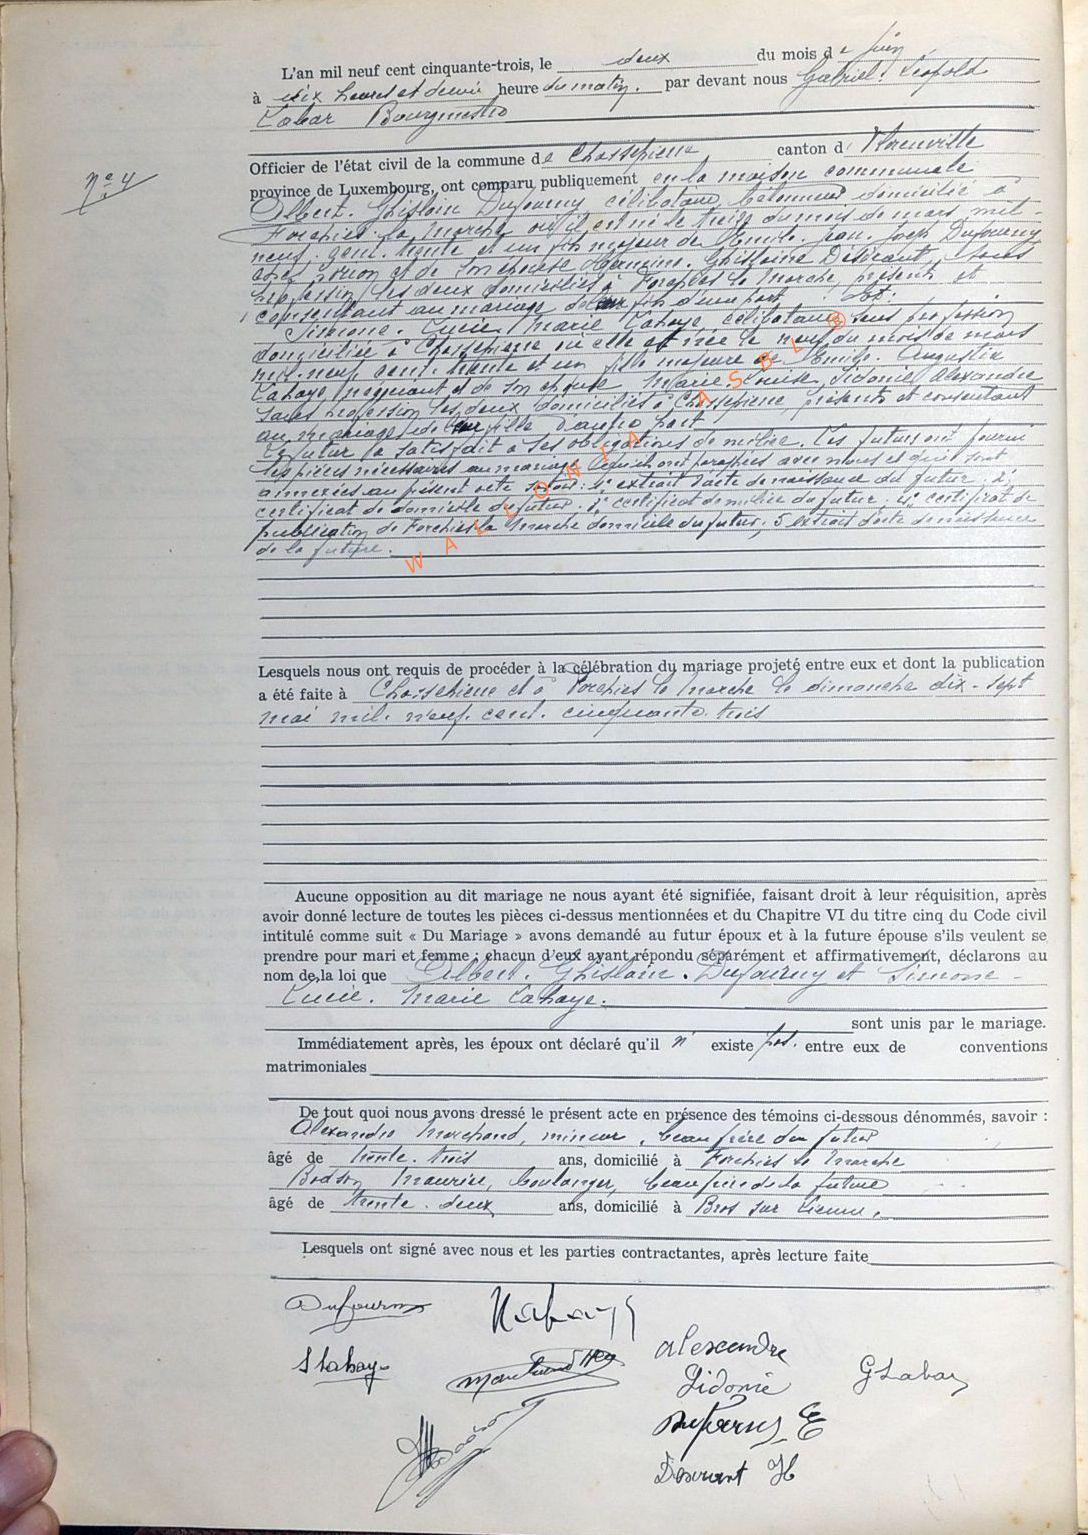 L'an mil neuf cent cinquante-trois, le deux du mois de Juin
à dix heures et demie heure du matin. par devant nous Gabriel. Léopold
Labar Bourgmestre
Officier de l'état civil de la commune de Chassepierre canton d Florenville
N° 4
province de Luxembourg, ont comparu publiquement en la maison communale
Albert. Ghislain Dufourny célibataire, domicilié à
Forchies-la-Marche où il est né le treize du mois de mars mil-
neuf. cent. trente et un fils majeur de Emile. Jean. Joseph Dufourny
et de son épouse Hermine. Ghislaine sans
profession, les deux domiciliés à Forchies la Marche, présents et
consentant au mariage de leur fils d'une part. Et:
Simone. Lucie. Marie Lahaye, célibataire sans profession
domiciliée à Chassepierre où elle est née le neuf du mois de mars
mil. neuf. cent. trente et un fille majeure de Emile. Augustin
Lahaye et de son épouse Marie Louise Sidonie Alexandre
sans profession les deux domiciliés à Chassepierre, présents et consentant
au mariage de leur fille d'autre part
Le futur a satisfait à ses obligations de milice. Les futurs ont fourni
les pièces nécessaires au mariage avec nous et qui sont
annexées au présent acte savoir: 1° extrait d'acte de naissance du futur. 2°
certificat de domicile du futur. 3° certificat de milice du futur. 4° certificat de
publication de Forchies la Marche domicile du futur; 5 extrait d'acte de naissance
de la future.
WALLONIA ASBL ®
Lesquels nous ont requis de procéder à la célébration du mariage projeté entre eux et dont la publication
a été faite à Chassepierre et à Forchies la Marche le dimanche dix-sept
mai mil. neuf. cent. cinquante. trois
Aucune opposition au dit mariage ne nous ayant été signifiée, faisant droit à leur réquisition, après
avoir donné lecture de toutes les pièces ci-dessus mentionnées et du Chapitre VI du titre cinq du Code civil
intitulé comme suit « Du Mariage » avons demandé au futur époux et à la future épouse s'ils veulent se
prendre pour mari et femme ; chacun d'eux ayant répondu séparément et affirmativement, déclarons au
nom de la loi que Albert. Ghislain. Dufourny et Simone-
Lucie. Marie Lahaye.
sont unis par le mariage.
Immédiatement après, les époux ont déclaré qu'il n' existe pas. entre eux de conventions
matrimoniales
De tout quoi nous avons dressé le présent acte en présence des témoins ci-dessous dénommés, savoir :
Alexandre Marchand, mineur, beau frère du futur
âgé de trente. trois ans, domicilié à Forchies la Marche
Bodson Maurice, boulanger, beau frère de la future
âgé de trente. deux ans, domicilié à Bras sur Lienne.
Lesquels ont signé avec nous et les parties contractantes, après lecture faite
Dufourny
Lahaye
S Lahaye
Alexandre
Sidonie
G Labar
Dufourny E
H